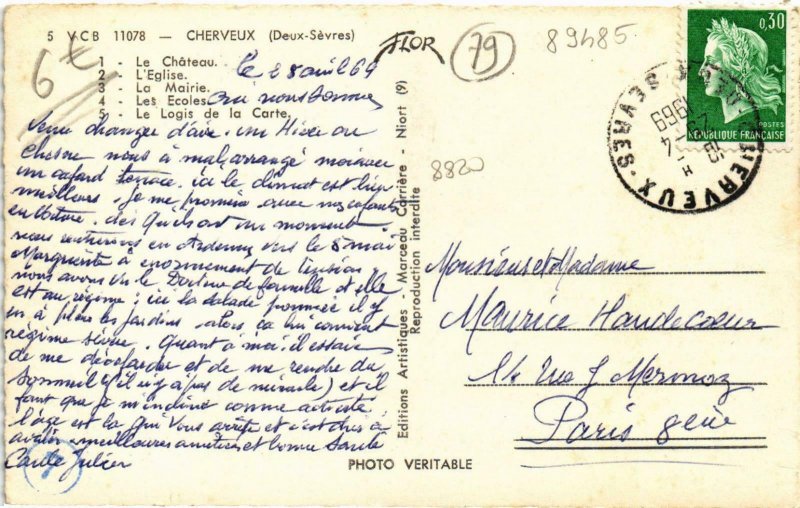 5 VCB 11078 — CHERVEUX (Deux-Sèvres)
1 - Le Château.
2 - L'Eglise.
3 - La Mairie.
4 - Les Ecoles.
5 - Le Logis de la Carte.
FLOR
79
89485
6€
8820
0,30
POSTES
REPUBLIQUE FRANÇAISE
CHERVEUX
SEVRES
1969
le 28 avril 69
nous sommes
venu changer d'air. un Hiver au
nous a mal arrangé moi avec
un cafard terrace. ici le climat est bien
meilleurs. je me promène avec nos enfants
en voiture. dès qu'ils ont un moment
nous rentrerons en Ardennes vers le 8 mai
Marguerite à enormement de tension
nous avons vu le Docteur de famille et elle
est au régime; ici la salade pommée il y
en à pleins les jardins. alors, ça lui convient
régime sévère. Quant a moi il essaie
de me et de me rendre du
sommeil (il n'y a pas de miracle) et il
faut que je m'incline comme activité
l'âge est la qui vous arrête et c'est dur à
avaler. meilleures amitiés et bonne santé
Julien
Editions Artistiques - Marceau Carrière - Niort (9)
Reproduction interdite
Monsieur et Madame
Maurice Haudecoeur
14 Rue J Mermoz
Paris 8eme
PHOTO VERITABLE